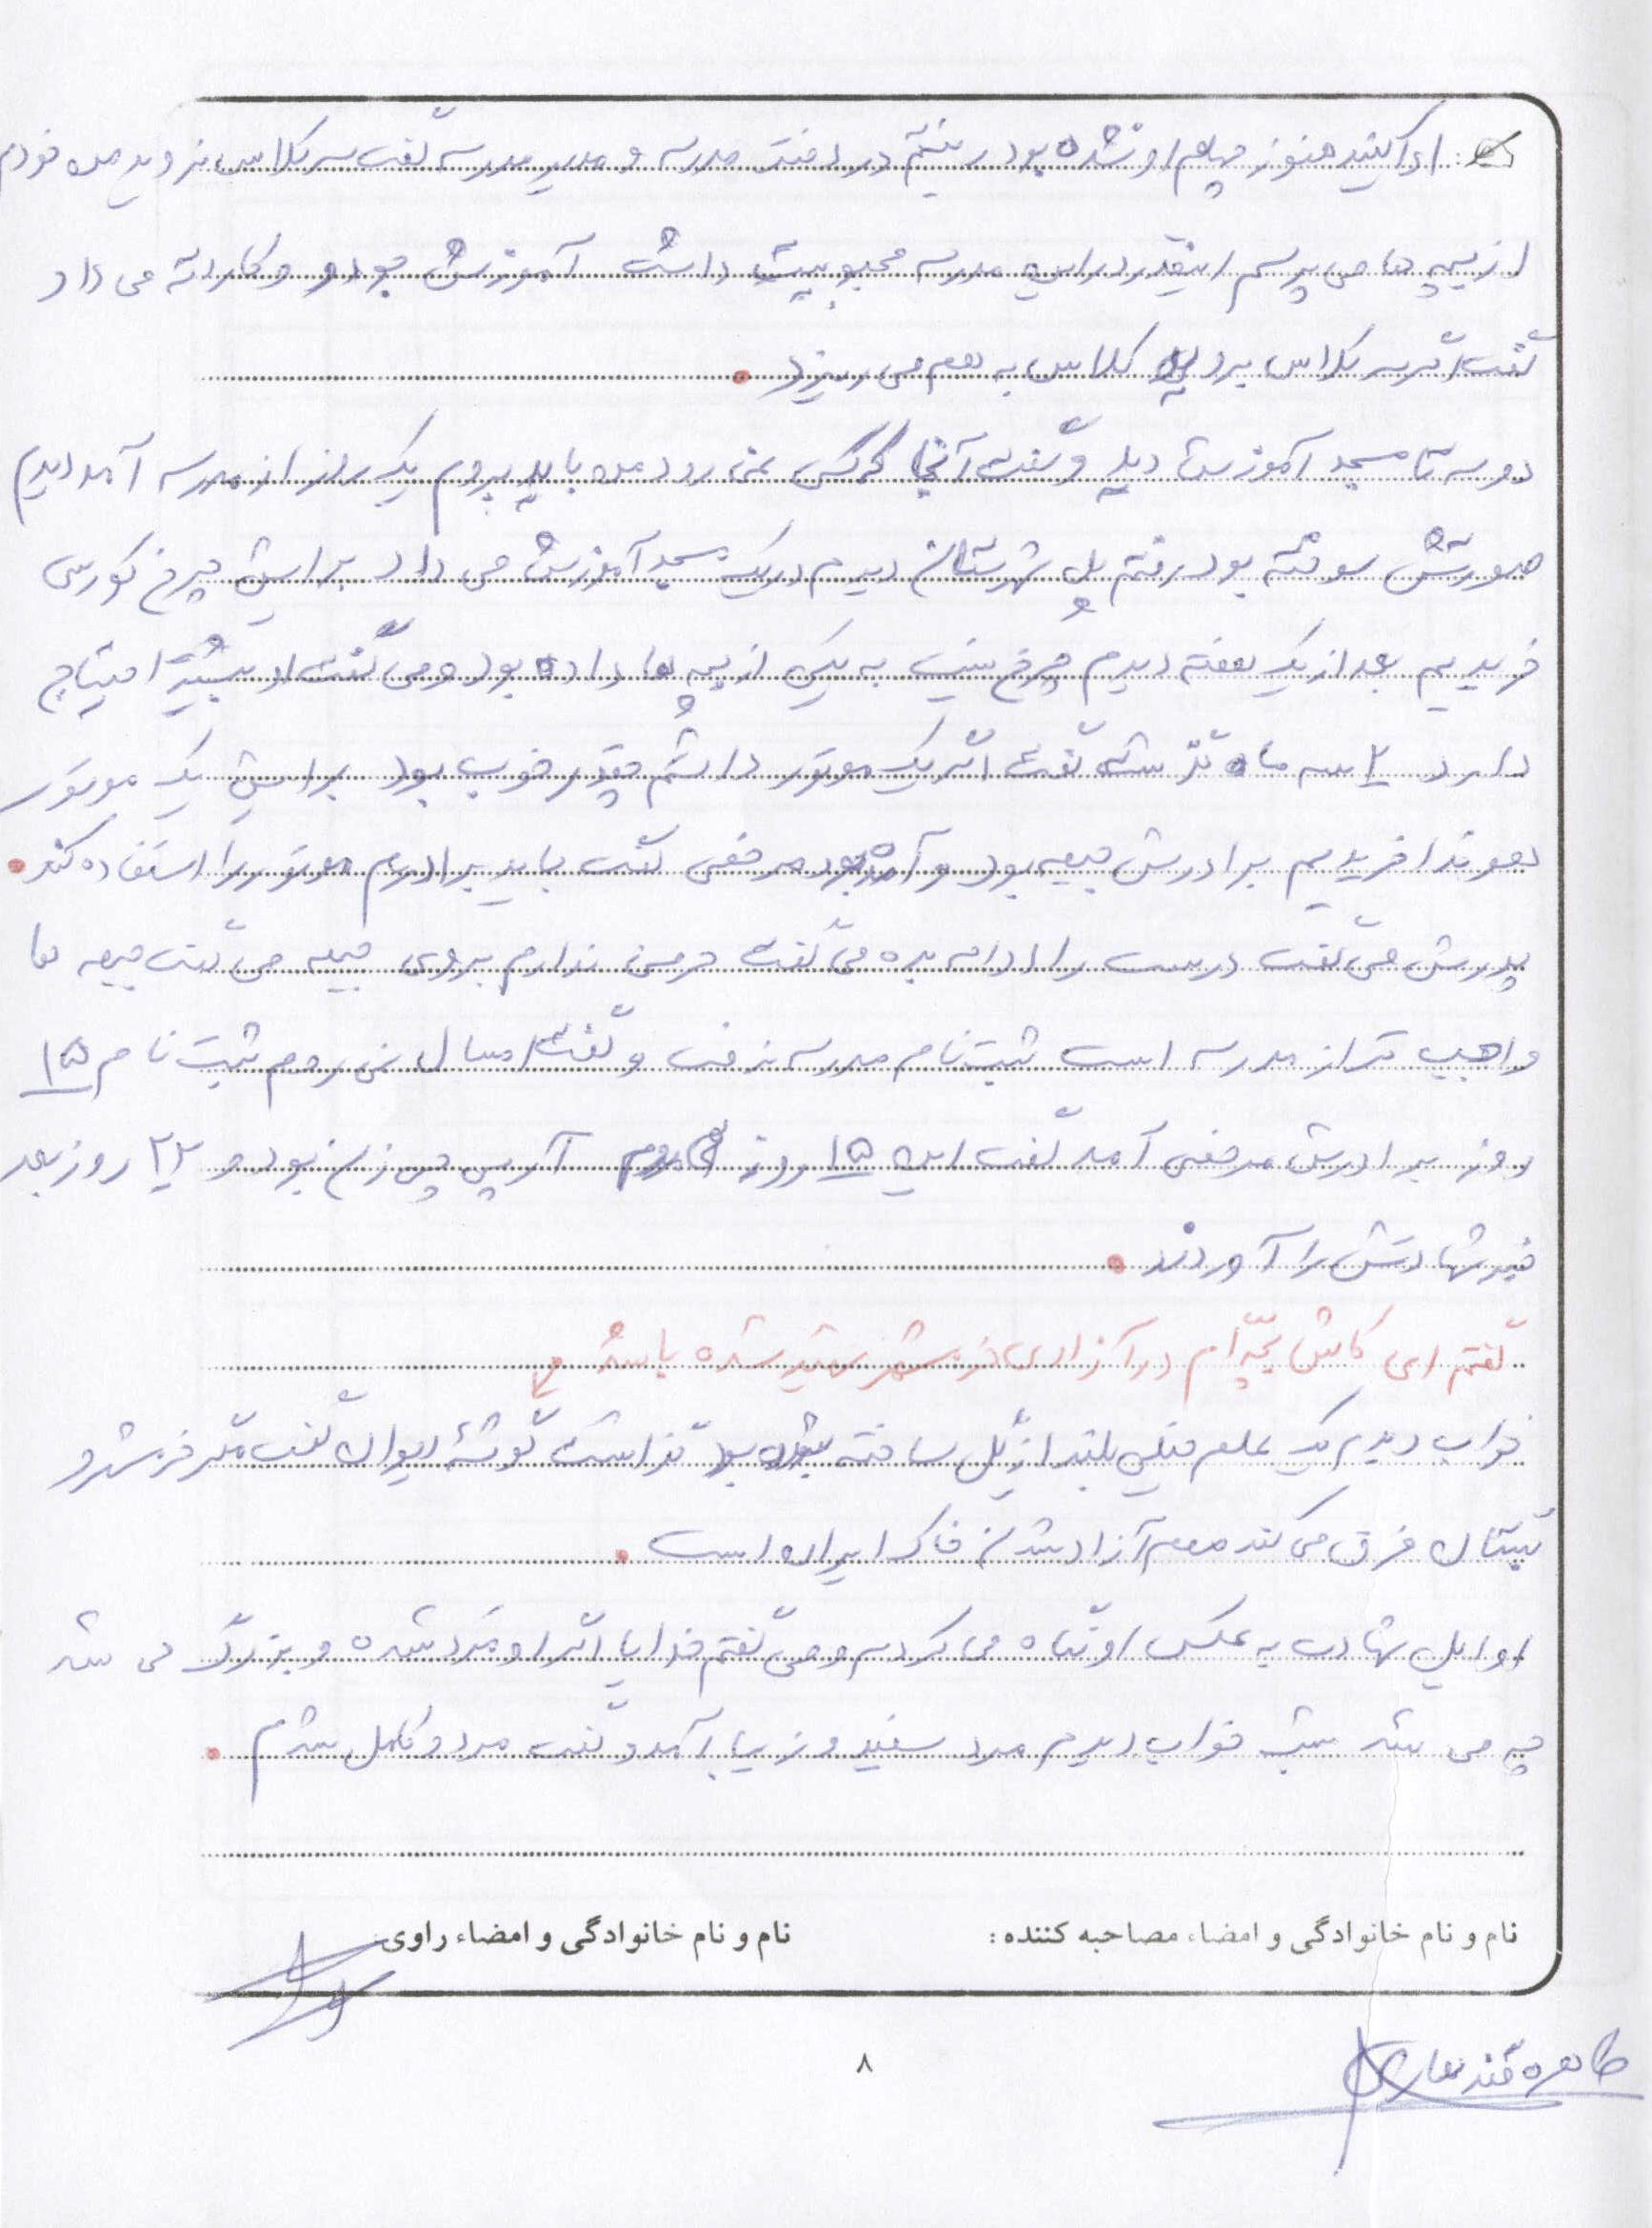 ادا کنید هنوز چهلم او نشده بود رفتیم در دفتر مدرسه و مدیر مدرسه گفت سر کلاس نروید من خودم
از بچه ها می پرسم اینقدر در این مدرسه محبوبیت داشت آموزش بود و کار دانه می داد
گفت اگر سر کلاس بروید کلاس به هم می ریزد
دو سه تا مسجد آموزش دید و گفت آنجا که کس نمی رود من باید بروم یک روز از مدرسه آمد دیدم
صورتش سوخته بود رفتم پل شهرستان دیدم در یک مسجد آموزش می داد برایش چرخ کورسی
خریدیم بعد از یک هفته دیدم چرخ نیست به یکی از بچه ها داده بود و می گفت او بیشتر احتیاج
دارد ۲ سه ماه گذشت گفت اگر یک موتور داشتم چقدر خوب بود برایش یک موتور
هوندا خریدیم برادرش جبهه بود و آمده بود مرخصی گفت باید برادرم موتور را استفاده کند
پدرش می گفت درست را ادامه بده می گفت حرفی ندارم بروی جبهه می گفت جبهه ها
واجب تر از مدرسه است ثبت نام مدرسه نرفت و گفت امسال نمی روم ثبت نام ۱۵
روز برادرش مرخصی آمد گفت این ۱۵ روز می روم آر پی چی زن بود و ۲۲ روز بعد
خبر شهادتش را آوردند
گفتم ای کاش بچه ام در آزادی خرمشهر شهید شده باشد
خواب دیدم یک علم خیلی بلند از گل ساخته شده بود گذاشت گوشه ایوان گفت مگر خرمشهر و
تپتان فرق می کند مهم آزاد شدن خاک ایران است
اوایل شهادت به عکس او نگاه می کردم و می گفتم خدایا اگر او مَرد شده و بزرگ می شد
چه می شد شب خواب دیدم مرد سفید و زیبا آمد و گفت مرد و کامل شدم
نام و نام خانوادگی و امضاء مصاحبه کننده : نام و نام خانوادگی و امضاء راوی
طاهره قندهاری
۸